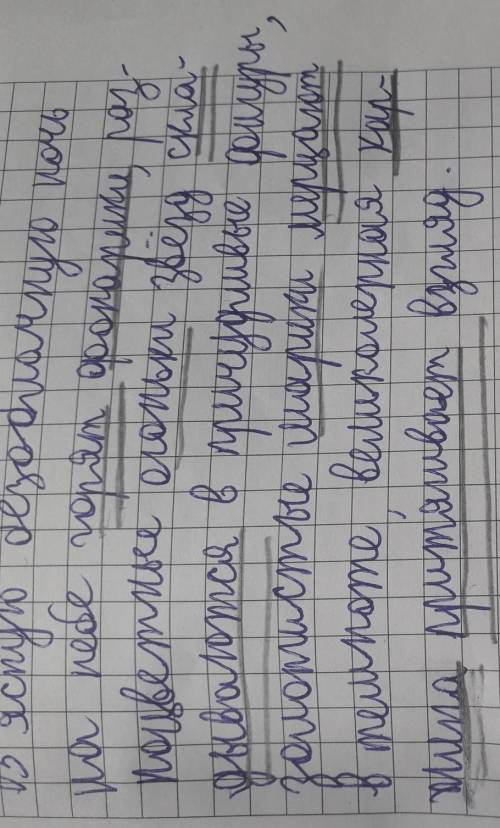 В ясную безоблачную ночь
на небе горят фонарики, раз-
ноцветные огоньки звёзд скла-
дываются в причудливые фигуры,
золотистые шарики мерцают
в темноте, великолепная кар-
тина притягивает взгляд.